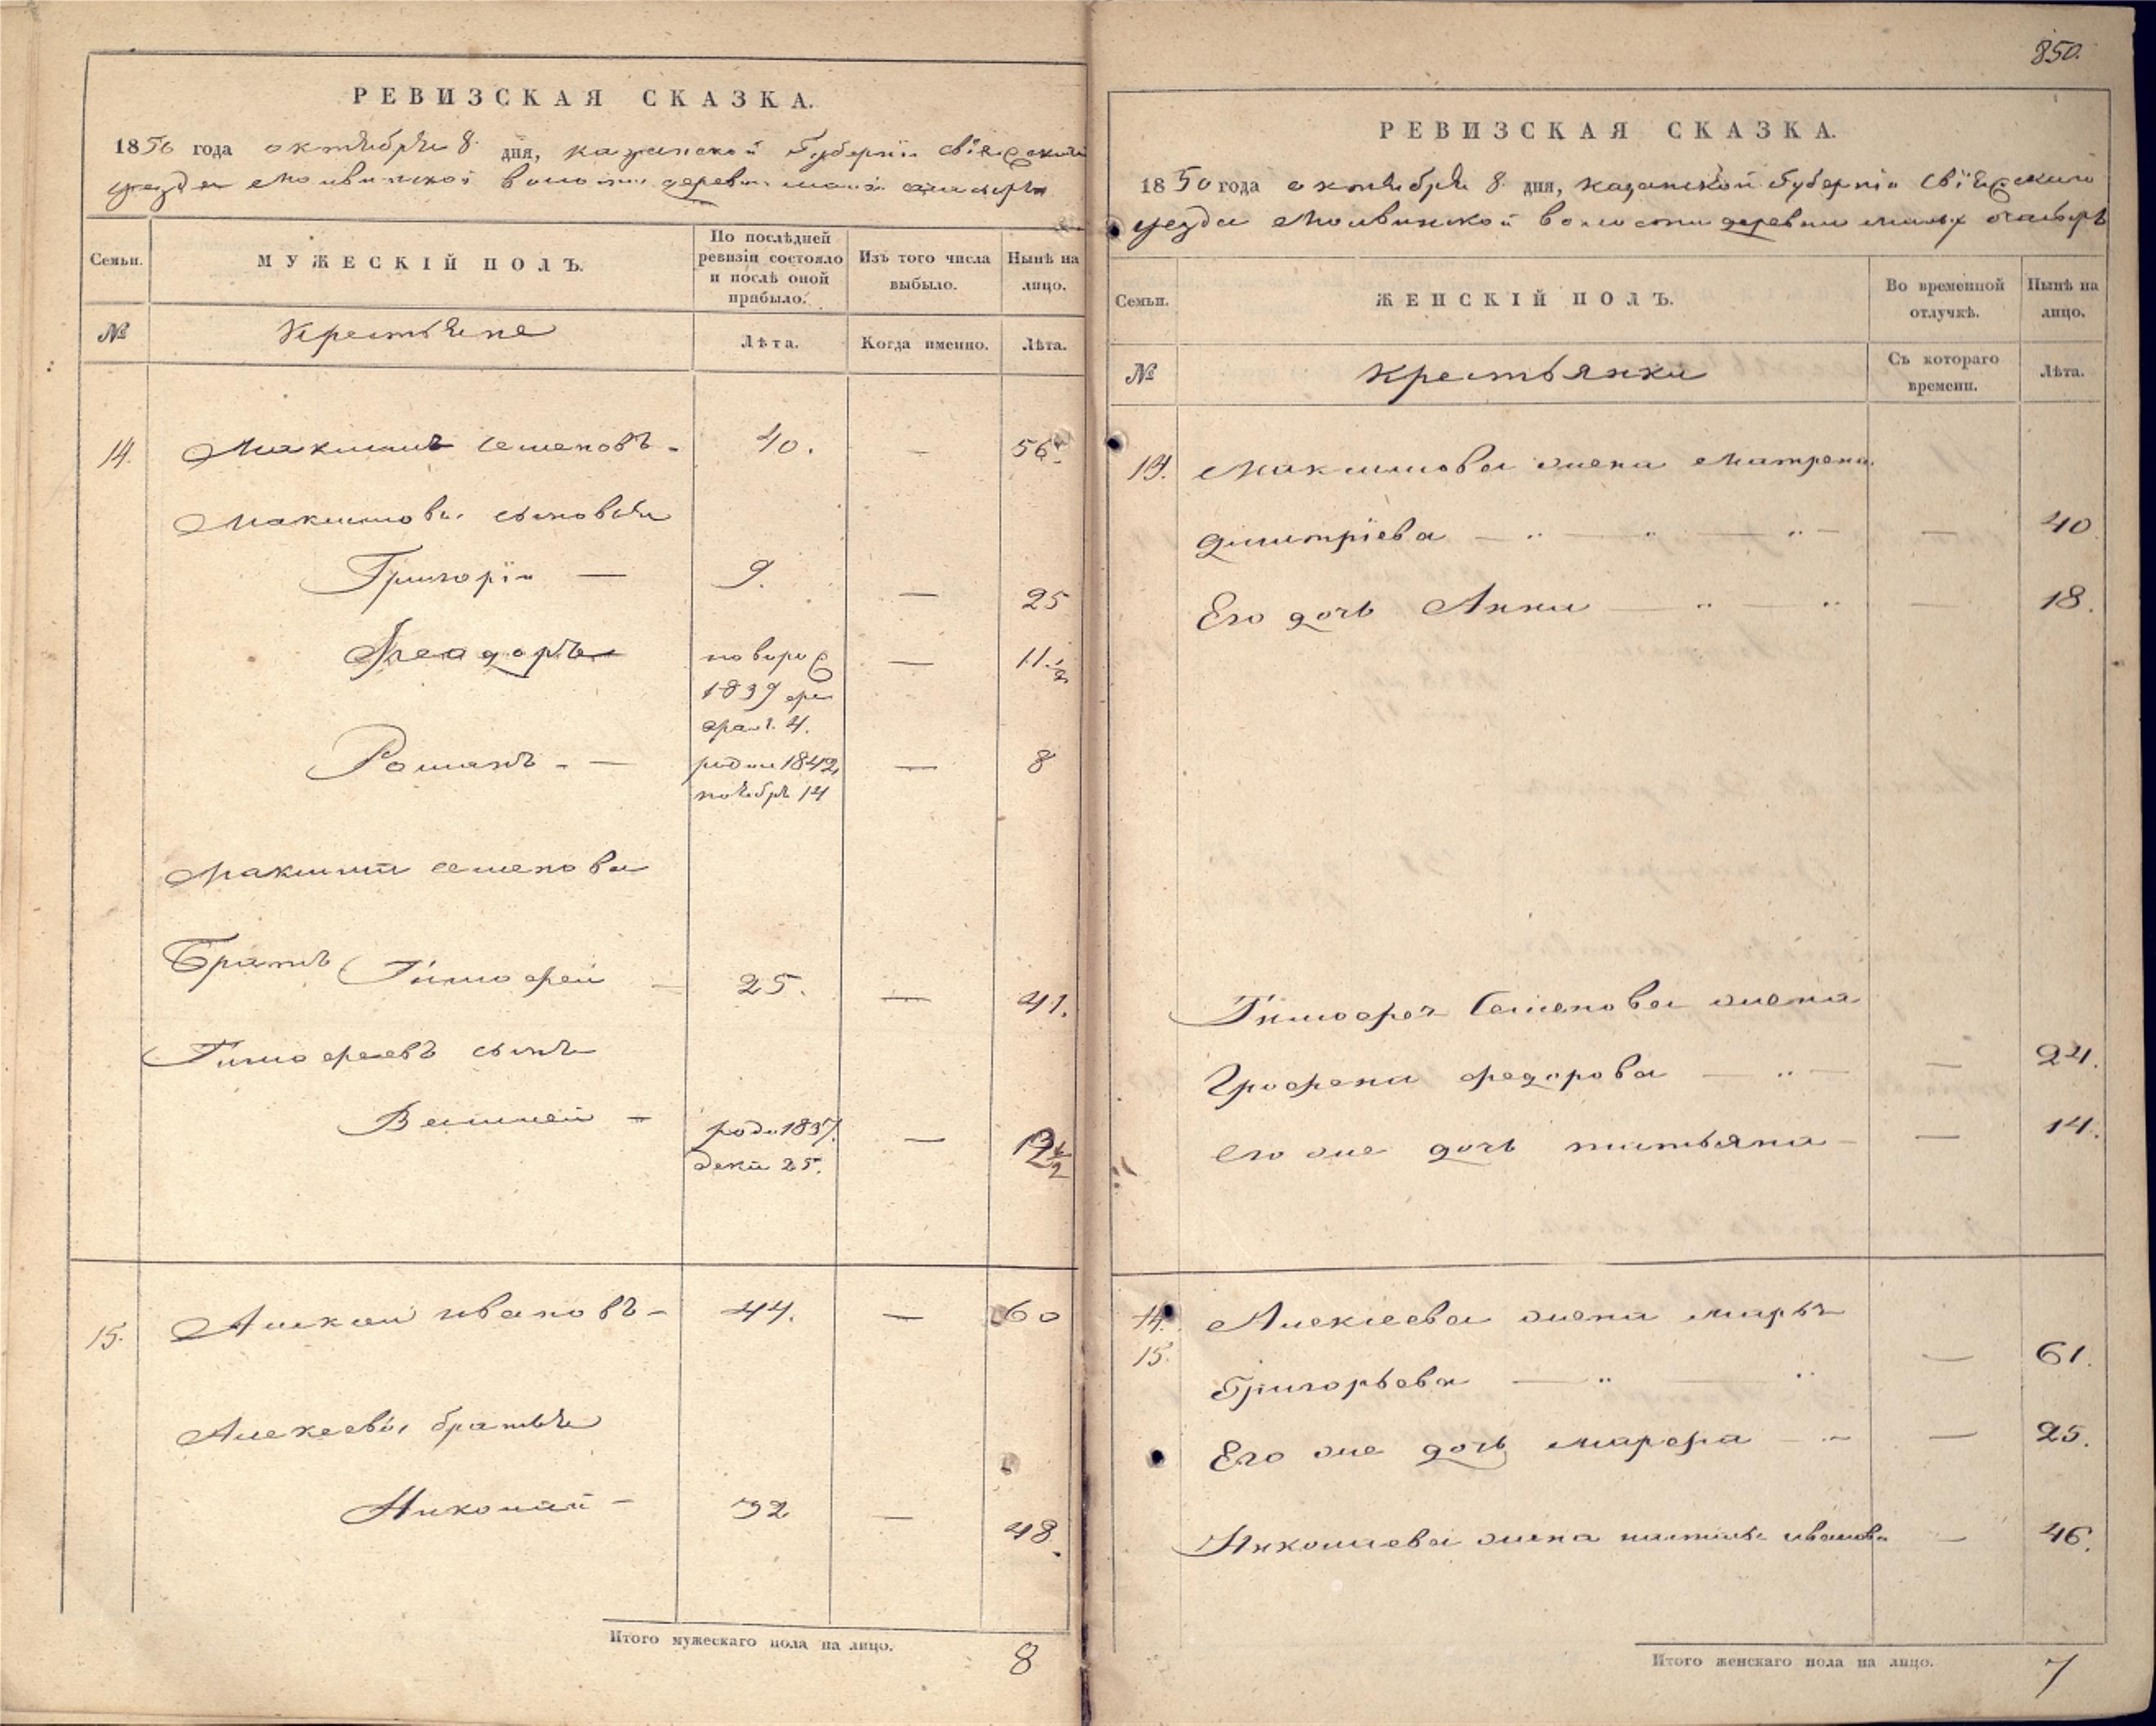 РЕВИЗСКАЯ СКАЗКА.
1850 года октября 8 дня, казанской Губернии свіяжскаго
уезда Молвинской волости деревни
Семьи.
МУЖЕСКІЙ ПОЛЪ.
По послѣдней ревизіи состояло и послѣ оной прибыло.
Изъ того числа выбыло.
Нынѣ на лицо.
№
Крестьяне
Лѣта.
Когда именно.
Лѣта.
14. Максимъ Семеновъ - 40. — 56.
Максимовы сыновья
Григорій — 9. — 25
Феодоръ новорож — 11 1/2
1839 фе
врал. 4.
Романъ - — родил 1842 — 8
ноября 14
Максима семенова
Братъ Тимофей 25. — 41.
Тимофеевъ сынъ
родил 1837. —
дека 25.
15. Алексей ивановъ - 44. — 60
Алексеевы братья
Николай - 32 — 48.
Итого мужескаго пола на лицо. 8
850.
РЕВИЗСКАЯ СКАЗКА.
1850 года октября 8 дня, казанской Губерніи Свіяжскаго
уезда Молвинской волости деревни
Семьи.
ЖЕНСКІЙ ПОЛЪ.
Во временной отлучкѣ.
Нынѣ на лицо.
№
Крестьянки
Съ котораго времени.
Лѣта.
14. Максимова жена Матрена
Димитріева — — 40
Его дочь Анна — — 18.
Тимофея Семенова жена
федорова — — 24.
его же дочь татьяна — — 14.
14.
15. Алексеева жена марья
Григорьева — — 61.
Его же дочь марфа — — 25.
Николаева жена иванова — 46.
Итого женскаго пола на лицо. 7